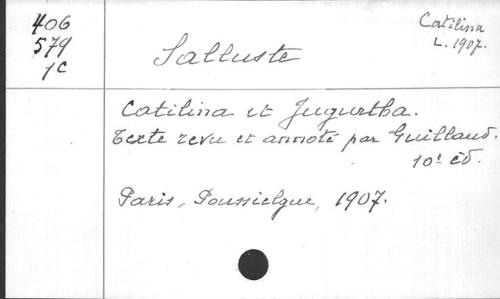 406
579
1C
Catilina
L. 1907.
Salluste
Catilina et Jugurtha.
Texte revu et annoté par Guillaud.
10e éd.
Paris, Poussielgue, 1907.